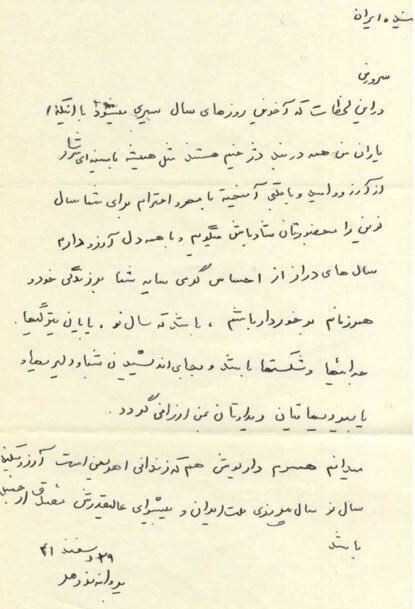 پنیده ایران
سرورمن
در این لحظات که آخرین روزهای سال سپری میشود با آنکه
یاران من همه در بند دژخیم هستند مثل همیشه با سینه‌ای سرشار
از آرزو و امید و با قلبی آمیخته با مهر و احترام برای شما سال
نو را بحضورتان شادباش میگویم و با همه دل آرزو دارم
سال‌های دراز از احساس گرمی سایه شما بر زندگی خود و
همرزمانم برخوردار باشم ، باشد که سال نو ، پایان تیرگیها
جدائیها و شکستها باشد و بجای اندیشیدن شما و دلیریها و
پایمردیهایتان دیدارتان بمن ارزانی گردد .
میدانم همسرم داریوش هم که زندانی اهریمن است آرزو میکند
سال نو سال پیروزی ملت ایران و پیشوای عالیقدرش مصدق از
باشد
۲۹ اسفند ۴۱
پروانه فروهر